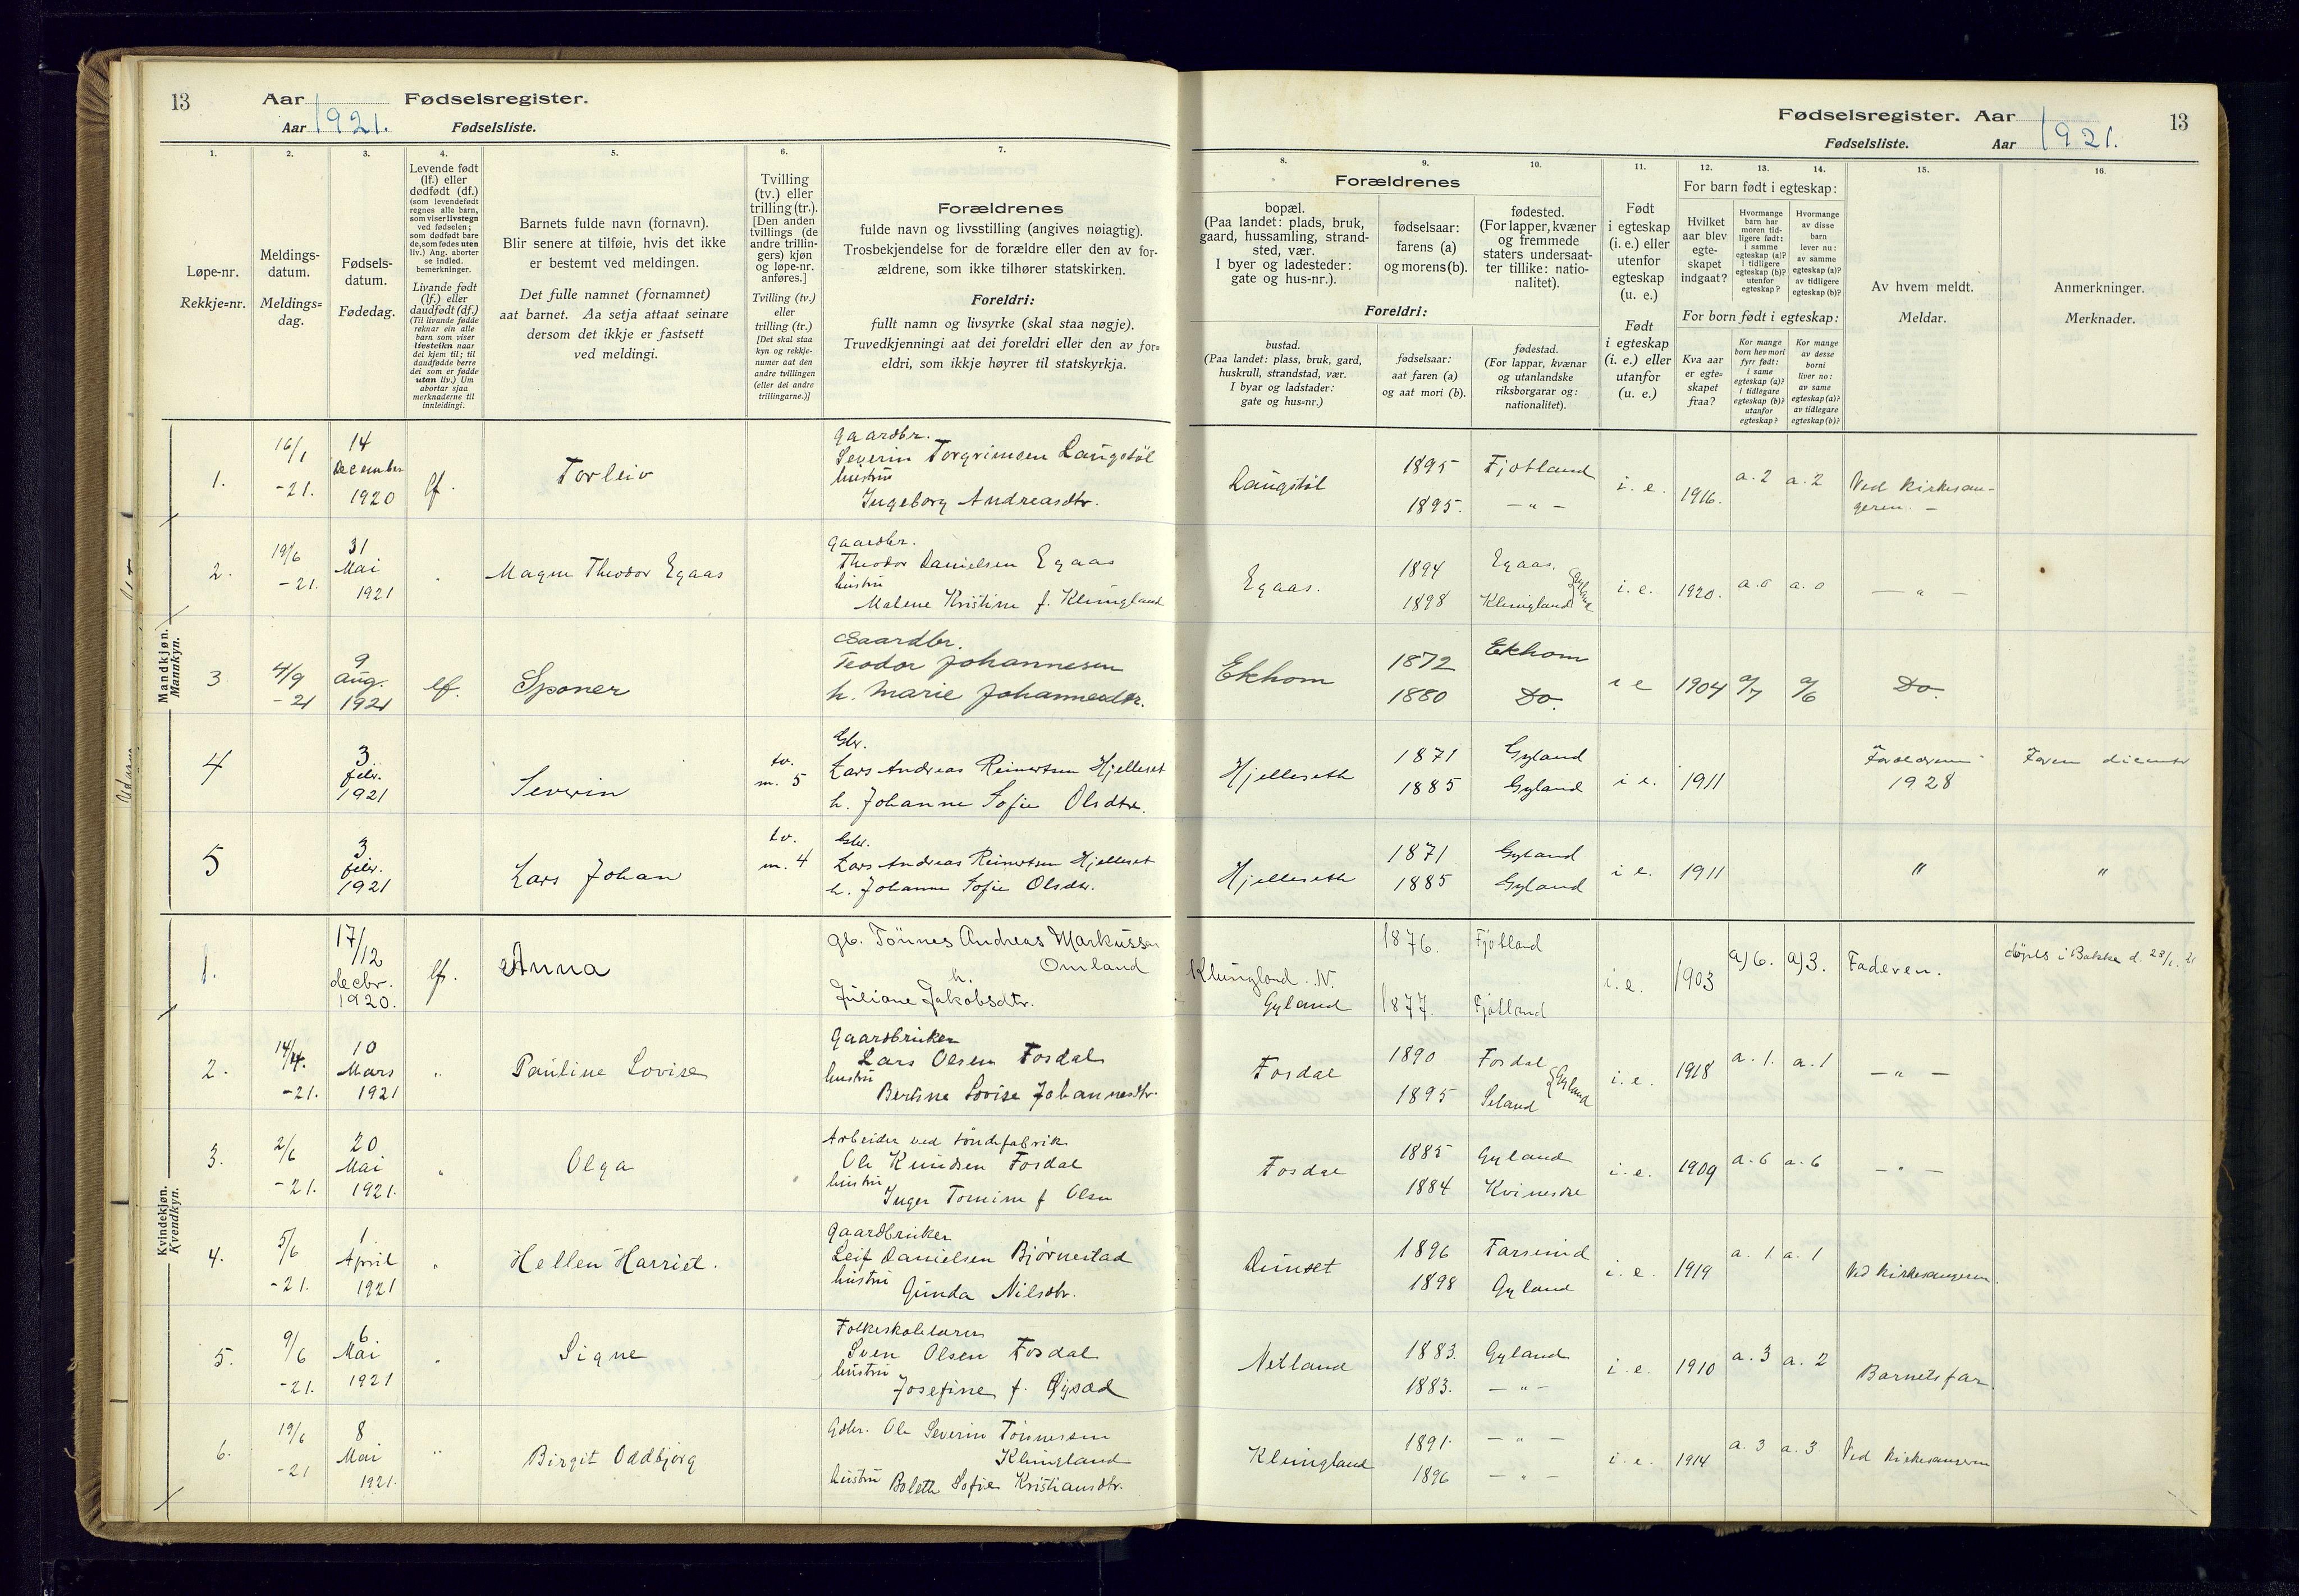 13
Aar
Fødselsregister.
Aar 1921.
Fødselsliste.
1.
2.
3.
4.
5.
6.
7.
Løpe-nr.
Rekkje-nr.
Meldings-
datum.
Meldings-
dag.
Fødsels-
datum.
Fødedag.
Levende født
(lf.) eller
dødfødt (df.)
(som levendefødt
regnes alle barn,
som viser livstegn
ved fødselen;
som dødfødt bare
de, som fødes uten
liv.) Ang. aborter
se indled.
bemerkninger.
Livande født
(lf.) eller
daudfødt (df.)
(Til livande fødde
reknar ein alle
barn som viser
livsteikn naar
dei kjem til; til
daudfødde berre
dei som er fødde
utan liv.) Um
abortar sjaa
merknaderne til
innleidingi.
Barnets fulde navn (fornavn).
Blir senere at tilføie, hvis det ikke
er bestemt ved meldingen.
Det fulle namnet (fornamnet)
aat barnet. Aa setja attaat seinare
dersom det ikkje er fastsett
ved meldingi.
Tvilling
(tv.) eller
trilling (tr.).
[Den anden
tvillings (de
andre trillin-
gers) kjøn
og løpe-nr.
anføres.]
Tvilling (tv.)
eller
trilling (tr.)
[Det skal staa
kyn og rekkje-
numer aat den
andre tvillingen
(eller dei andre
trillingarne.)]
Forældrenes
fulde navn og livsstilling (angives nøiagtig).
Trosbekjendelse for de forældre eller den av for-
ældrene, som ikke tilhører statskirken.
Foreldri:
fullt namn og livsyrke (skal staa nøgje).
Truvedkjenningi aat dei foreldri eller den av for-
eldri, som ikkje høyrer til statskyrkja.
Mandkjøn.
Mannkyn.
1.
16/1
-21.
14
December
1920
lf.
Torleiv
Gaardbr.
Severin Torgrimsen Langstøl
hustru
Ingeborg Andreasdtr.
2.
19/6
-21.
31
Mai
1921
"
Magne Theodor Egaas
Gaardbr.
Theodor Danielsen Egaas
hustru
Malene Kristine f. Klungland
3
4/9
-21
9
Aug.
1921
lf.
Sponer
Gaardbr.
Teodor Johannesen
h. Marie Johannesdtr.
4
3
febr.
1921
Severin
tv.
m. 5
Gbr.
Lars Andreas Reinertsen Hjelleset
h. Johanne Sofie Olsdtr.
5
3
febr.
1921
Lars Johan
tv.
m. 4
Gbr.
Lars Andreas Reinertsen Hjelleset
h. Johanne Sofie Olsdtr.
Kvindekjøn.
Kvendkyn.
1.
17/12
decbr.
1920.
lf.
Anna
gb. Tönnes Andreas Markussen
Omland
h.
Juliane Jakobsdtr.
2.
14/4.
-21.
10
Mars
1921
"
Pauline Lovise
Gaardbruker
Lars Olsen Fosdal
hustru
Bertine Lovise Johannesdtr.
3.
2/6
-21.
20
Mai
1921.
"
Olga
Arbeider ved töndefabrik
Ole Knudsen Fosdal
hustru
Inger Tomine f Olsen
4.
5/6
-21.
1
April
1921
"
Hellen Harriet.
Gaardbruker
Leif Danielsen Bjørnestad
hustru
Gunda Nilsdtr.
5.
9/6
-21.
6.
Mai
1921
"
Signe
Folkeskolelærer
Sven Olsen Fosdal
hustru
Josefine f. Øysæd
6.
19/6
-21
8
Mai
1921.
"
Birgit Oddbjørg
Gdbr. Ole Severin Tönnesen
Klungland
hustru Bolette Sofie Kristiansdtr.
Fødselsregister. Aar
13
Fødselsliste.
Aar 1921.
8.
9.
10.
11.
12.
13.
14.
15.
16.
Forældrenes
bopæl.
(Paa landet: plads, bruk,
gaard, hussamling, strand-
sted, vær.
I byer og ladesteder:
gate og hus-nr.).
fødselsaar:
farens (a)
og morens (b).
fødested.
(For lapper, kvæner
og fremmede
staters undersaat-
ter tillike: natio-
nalitet).
Foreldri:
bustad.
(Paa landet: plass, bruk, gard,
huskrull, strandstad, vær.
I byar og ladstader:
gate og hus-nr.)
fødselsaar:
aat faren (a)
og aat mori (b).
fødestad.
(For lappar, kvænar
og utanlandske
riksborgarar og:
nationalitet).
Født
i egteskap
(i. e.) eller
utenfor
egteskap
(u. e.)
Født
i egteskap
(i. e.) eller
utanfor
(u. e.)
For barn født i egteskap:
Hvilket
aar blev
egte-
skapet
indgaat?
Hvormange
barn har
moren tid-
ligere født:
i samme
egteskap (a)?
i tidligere
egteskap (b)?
utenfor
egteskap?
Hvormange
av disse
barn
lever nu:
av samme
egteskap (a)?
av tidligere
egteskap (b)?
For born født i egteskap:
Kva aar
er egte-
skapet
fraa?
Kor mange
born hev mori
fyrr født:
i same
egteskap (a)?
i tidlegare
egteskap (b)?
utanfor
egteskap?
Kor mange
av desse
borni
liver no:
av same
egteskap (a)?
av tidlegare
egteskap (b)?
Av hvem meldt.
Meldar.
Anmerkninger.
Merknader.
Langstöl
1895
1895.
Fjotland
— " —
i. e.
1916.
a. 2
a. 2
Ved kirkesan-
geren. —
Egaas.
1894
1898
Egaas.
Klungland
Gyland
i. e.
1920.
a. 0
a. 0
— " —
Ekhom
1872
1880
Ekhom
Do.
i e
1904
a/7
a/6
Do.
Hjelleseth
1871
1885
Gyland
Gyland
i e.
1911
1928
Hjelleseth
1871
1885
Gyland
Gyland
i e.
1911
"
"
Klungland. N.
Gyland
1876.
1877.
Fjotland
Fjotland
i. e.
1903
a) 6.
a) 3.
Faderen.
döpts i Bakke d. 23/1. 21
Fosdal
1890
1895
Fosdal
Seland
Gyland
i. e.
1918
a. 1.
a. 1
— " —
Fosdal
1885
1884
Gyland
Kvinesdal
i. e.
1909
a. 6
a. 6
— " —
Dunset
1896
1898
Farsund
Gyland
i. e.
1919
a. 1
a. 1
Ved kirkesangeren.
Netland
1883.
1883.
Gyland
— " —
i. e.
1910
a. 3
a. 2
Barnets far.
Klungland
1891.
1896
— " —
— " —
i. e.
1914
a. 3
a. 3
Ved kirkesangeren